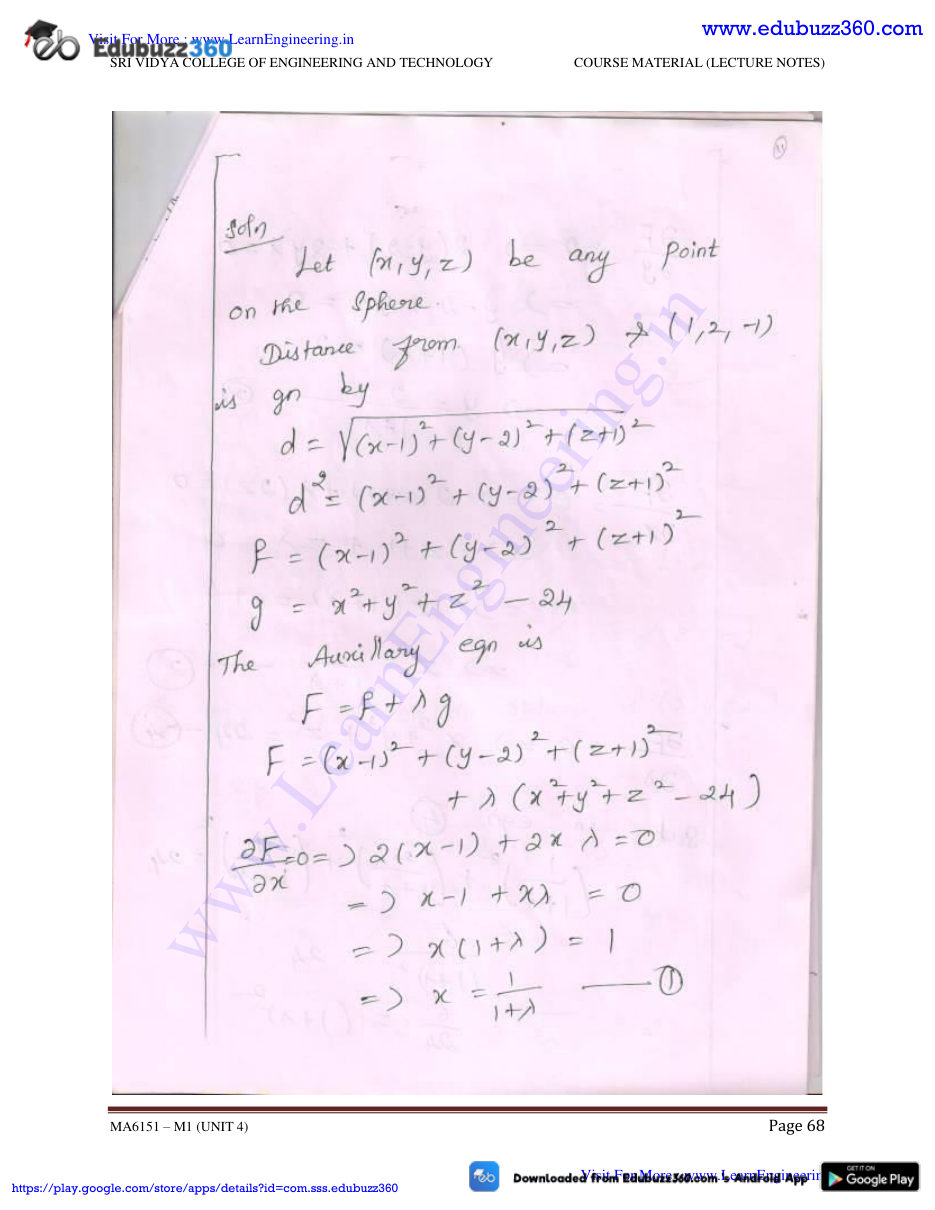 www.edubuzz360.com
Visit For More : www.LearnEngineering.in
Edubuzz360
SRI VIDYA COLLEGE OF ENGINEERING AND TECHNOLOGY COURSE MATERIAL (LECTURE NOTES)
Soln
Let (x, y, z) be any point
on the Sphere.
Distance from (x, y, z) & (1, 2, -1)
is gn by
d = √(x-1)² + (y-2)² + (z+1)²
d² = (x-1)² + (y-2)² + (z+1)²
f = (x-1)² + (y-2)² + (z+1)²
g = x² + y² + z² - 24
The Auxillary eqn is
F = f + λ g
F = (x-1)² + (y-2)² + (z+1)²
+ λ (x² + y² + z² - 24)
∂F/∂x = 0 => 2(x-1) + 2x λ = 0
=> x-1 + xλ = 0
=> x(1+λ) = 1
=> x = 1/(1+λ) —— ①
www.LearnEngineering.in
MA6151 – M1 (UNIT 4) Page 68
https://play.google.com/store/apps/details?id=com.sss.edubuzz360
Downloaded from EduBuzz360.com's Android App
Visit For More : www.LearnEngineerin
GET IT ON
Google Play